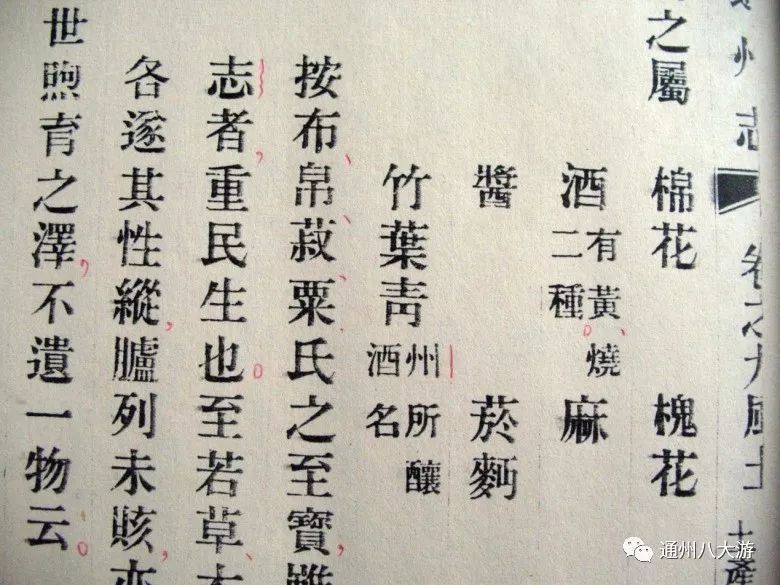 州志 卷之九 風土 土產
之屬 棉花 槐花
酒 有黃、燒二種。 麻
醬 菸麪
竹葉青 州所釀酒名
按布、帛、菽、粟氏之至寶，
志者，重民生也。至若草、木
各遂其性縱，臚列未賅，亦
世煦育之澤，不遺一物云。
通州八大游